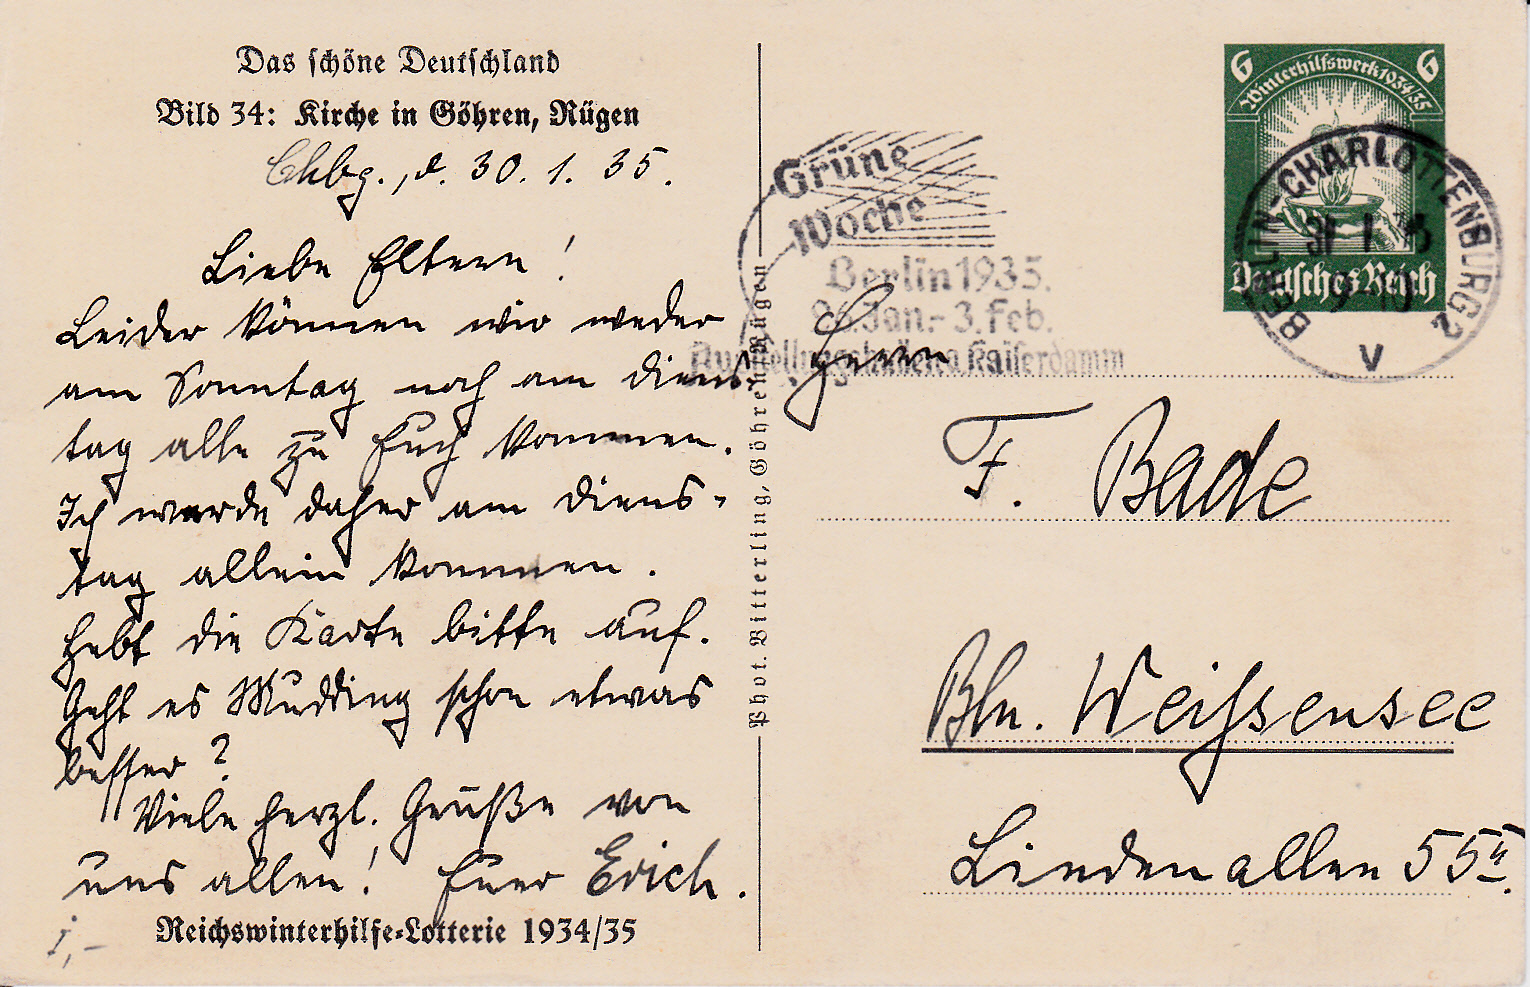 Das schöne Deutschland
Bild 34: Kirche in Göhren, Rügen
Chbg., d. 30. 1. 35.
Liebe Eltern!
Leider können wir weder
am Sonntag noch am Diens-
tag alle zu Euch kommen.
Ich werde daher am Diens-
tag allein kommen.
Hebt die Karte bitte auf.
Geht es Mudding schon etwas
besser?
Viele herzl. Grüße von
uns allen! Euer Erich.
Reichswinterhilfe-Lotterie 1934/35
1,-
Phot. Bitterling, Göhren Rügen
Grüne
Woche
Berlin 1935.
Jan.- 3. Feb.
Ausstellungshallen a. Kaiserdamm
6 Winterhilfswerk 1934/35 6
Deutsches Reich
BERLIN-CHARLOTTENBURG 2
31 1 35
9-10
V
Herrn
F. Bade
Bln. Weißensee
Lindenallee 55 II.